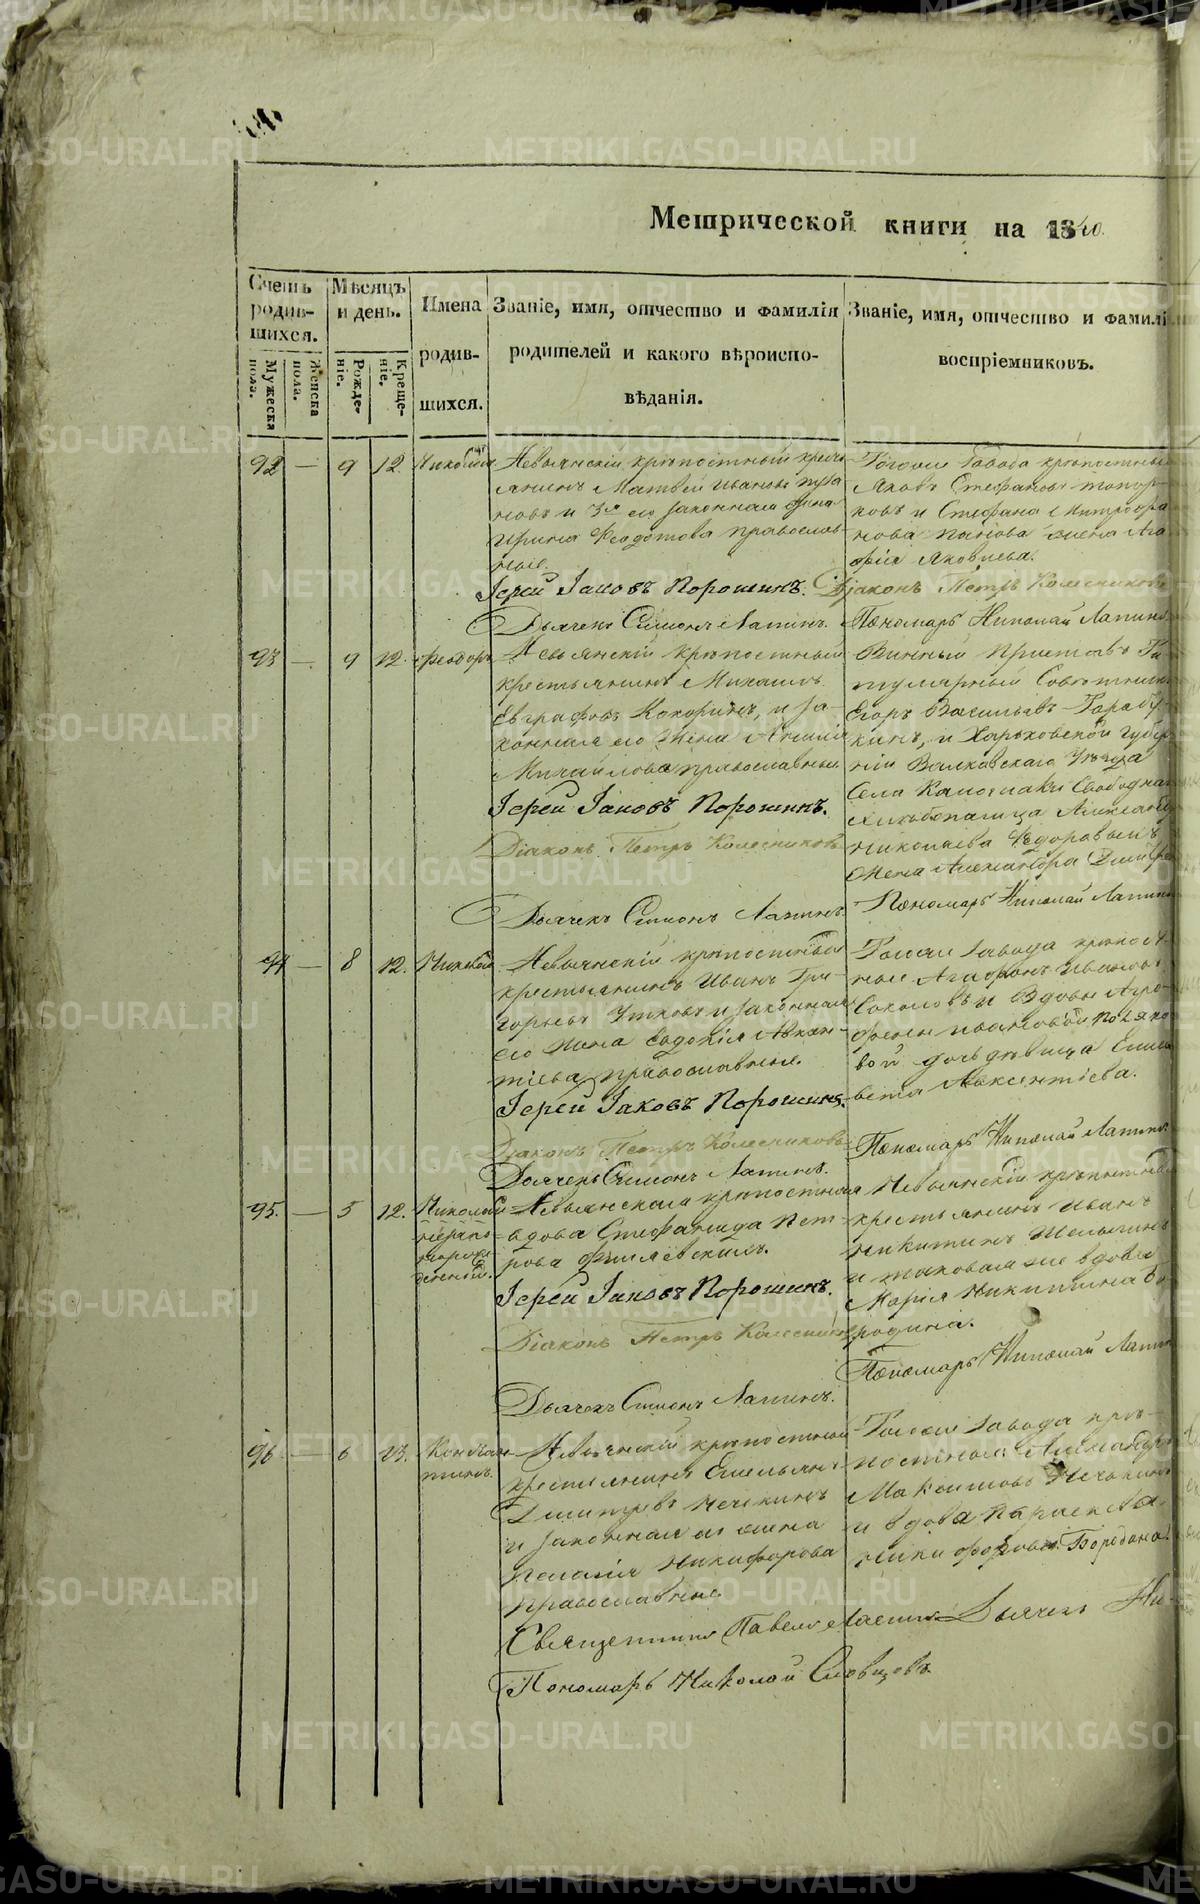 Метрической книги на 1840.
Счетъ родившихся.
Мужеска пола.
Женска пола.
Мѣсяцъ и день.
Рожденіе.
Крещеніе.
Имена родившихся.
Званіе, имя, отчество и фамилія родителей и какого вѣроисповѣданія.
Званіе, имя, отчество и фамилі
воспріемниковъ.
92 — 9 12. Николай
Невьянскій крѣпостный кресть
янинъ Матвей Ивановъ
новъ и 3й его законная жена
Ирина Федотова православ
ные.
Іерей Іаковъ Порошинъ.
Дьячекъ Симонъ Лапинъ.
Тогоже Завода крѣпостные
Яковъ Стефановъ
ковъ и Стефана Митрофа
нова жена Ага
фія Яковлева.
Діаконъ Петръ Колесниковъ
Пономарь Николай Лапинъ
93 — 9 12. Феодоръ
Невьянскій крѣпостный
крестьянинъ Михаилъ
Евграфовъ Кокоринъ, и за-
конная его жена
Михайлова православные
Іерей Іаковъ Порошинъ.
Діаконъ Петръ Колесниковъ
Дьячекъ Симонъ Лапинъ.
Винный Приставъ Ти
тулярный Совѣтникъ
Егоръ Васильевъ
кинъ, и Харьковской губер
ніи Валковскаго Уѣзда
Села
Александр
Николаева
жена Александра Дмитре
Пономарь Николай Лапинъ
94 — 8 12. Николай
Невьянскій крѣпостный
крестьянинъ Иванъ Гри-
горьевъ Утковъ и законная
его жена Евдокія Авксен-
тіева православные.
Іерей Іаковъ Порошинъ.
Діаконъ Петръ Колесниковъ
Дьячекъ Симонъ Лапинъ.
Тогоже завода крѣпост-
ные Агафонъ Ивановъ
Соколовъ и Вдовы Агро-
фены Ивановой Поляко
вой дочь дѣвица Елиса
вета Авксентіева.
Пономарь Николай Лапинъ
95. — 5 12. Николай
незаконо
рож
денный.
Невьянская крѣпостная
вдова Стефанида Пет-
рова
Іерей Іаковъ Порошинъ.
Діаконъ Петръ Колесниковъ
Дьячекъ Симонъ Лапинъ.
Невьянскій крѣпостный
крестьянинъ Иванъ
Никитинъ
и таковая же вдова
Марія Никитина Бо
родина.
Пономарь Николай Лапинъ
96. — 6 23. Констан
тинъ.
Невьянскій крѣпостной
крестьянинъ Емельянъ
Дмитревъ Нечкинъ
и законная его жена
Пелагія Никифорова
православные
Тогоже Завода крѣ-
постные: Александръ
Максимовъ Нечкинъ
и вдова Параскева
Никифорова Бородина.
Священникъ Павелъ Дьячекъ Ни-
Пономарь Николай Словцовъ
METRIKI.GASO-URAL.RU